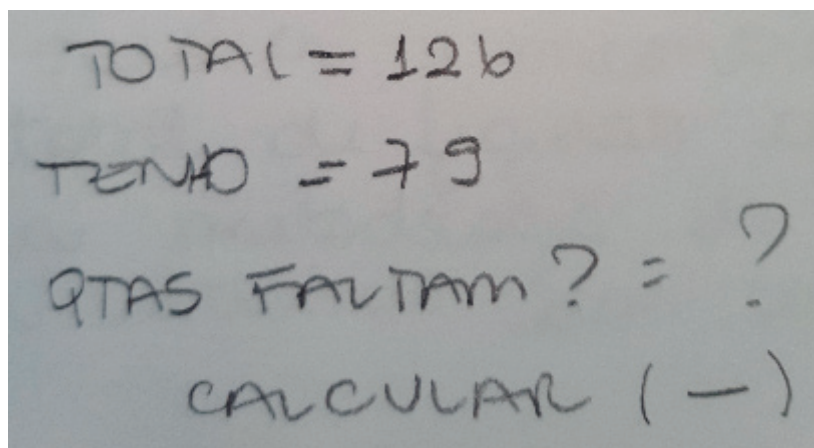 TOTAL = 126
TENHO = 79
QTAS FALTAM? = ?
CALCULAR (-)